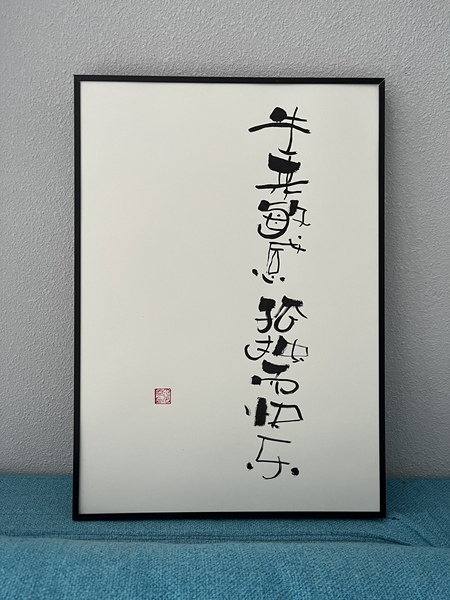 生来敏感 孤独而快乐